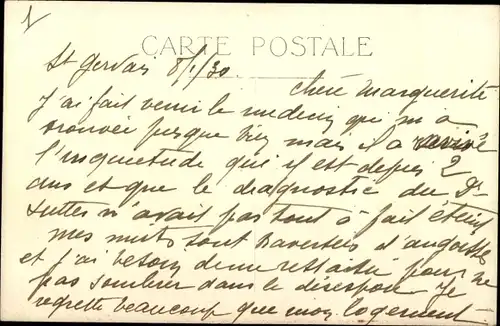 1
CARTE POSTALE
St Gervais 8/1/30
Chère Marguerite
J'ai fait venir le medecin qui m'a
trouvée presque bien mais il a ravivé
l'inquietude qui y est depuis 2
ans et que le diagnostic du Dr
n'avait pas tout à fait éteint
Mes nuits sont traversées d'angoisses
et j'ai besoin de me pour ne
pas sombrer dans le désespoir Je
regrette beaucoup que mon logement